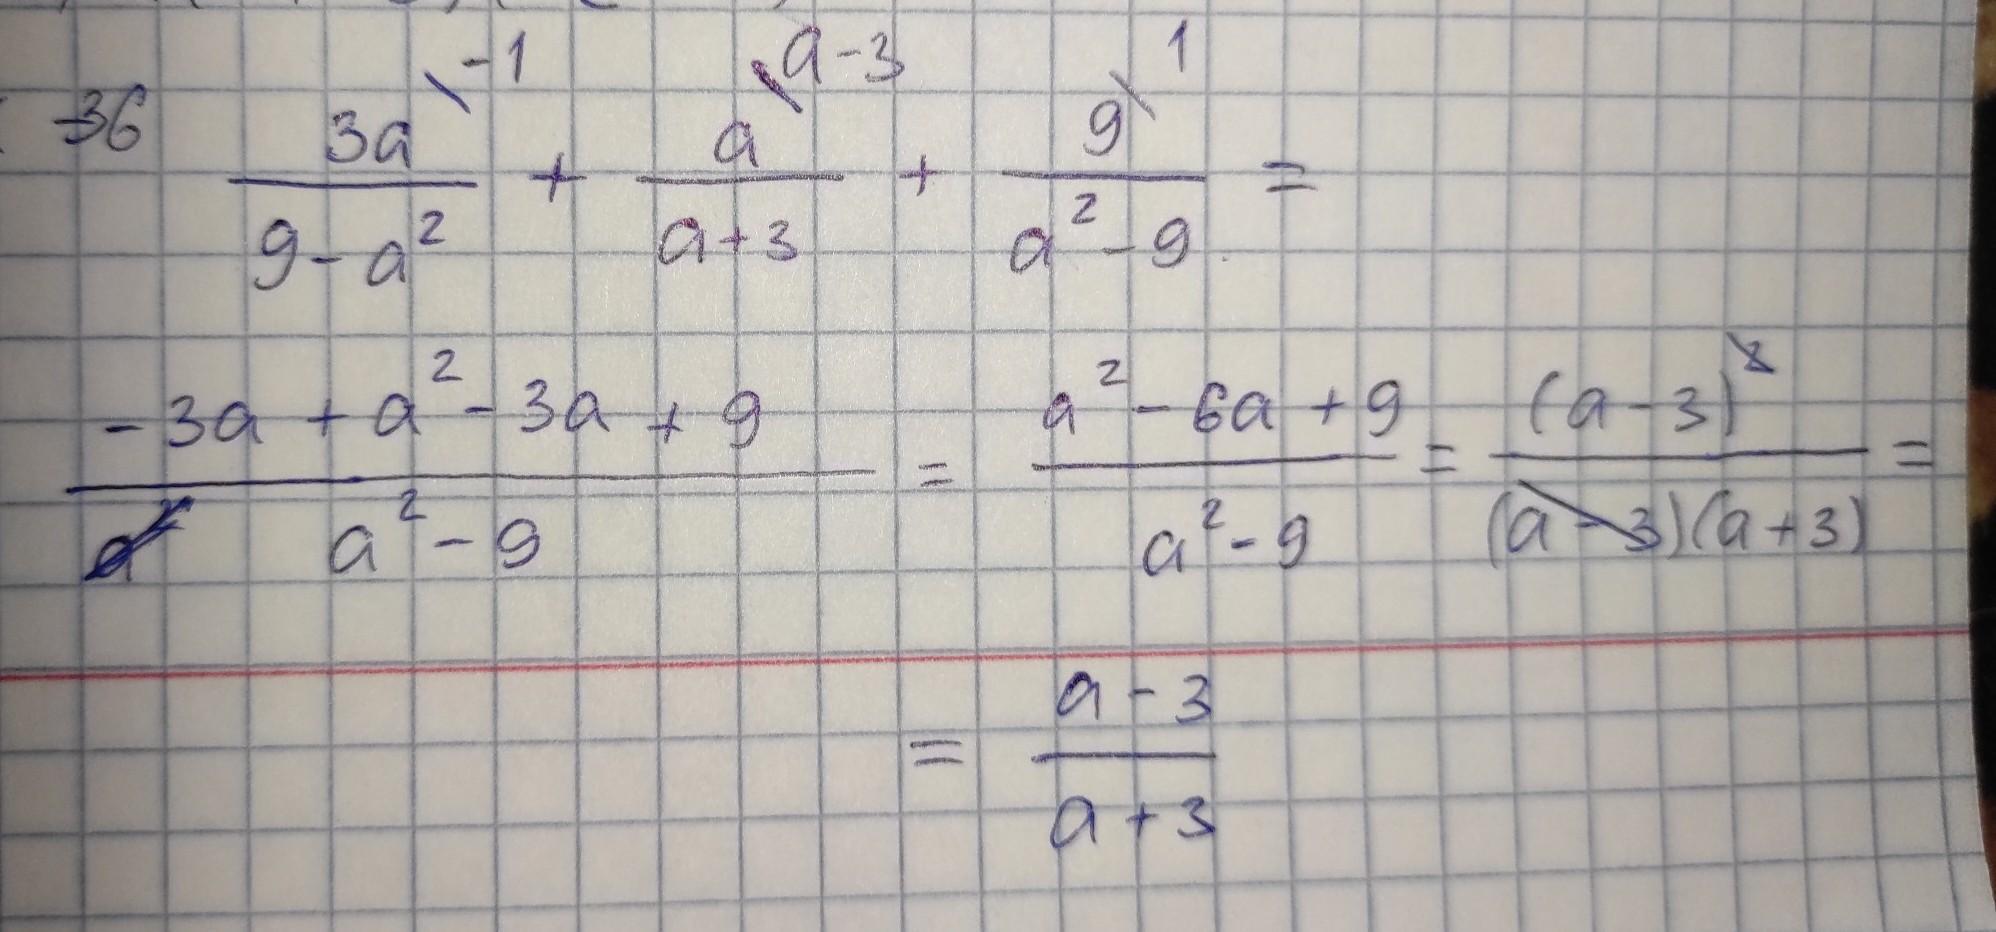 -36 3a\-1/(9-a²) + a\a-3/(a+3) + 9\1/(a²-9) =
(-3a + a² - 3a + 9)/(a²-9) = (a² - 6a + 9)/(a²-9) = (a-3)²/((a-3)(a+3)) =
= (a-3)/(a+3)